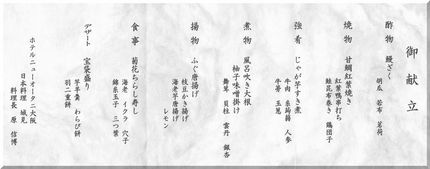 御献立
酢物 鰻ざく
胡瓜 若布 茗荷
焼物 甘鯛紅葉焼き
紅葉鴨串打ち
鮭昆布巻き 鶏団子
強肴 じゃが芋すき煮
牛肉 糸蒟蒻 人参
牛蒡 玉葱
煮物 風呂吹き大根
柚子味噌掛け
舞茸 貝柱 雲丹 銀杏
揚物 ふぐ唐揚げ
枝豆かき揚げ
海老芋唐揚げ
レモン
食事 菊花ちらし寿し
海老 イクラ 穴子
錦糸玉子 三つ葉
デザート 宝袋盛り
芋羊羹 わらび餅
羽二重餅
ホテルニューオータニ大阪
日本料理 城見
料理長 原 信博